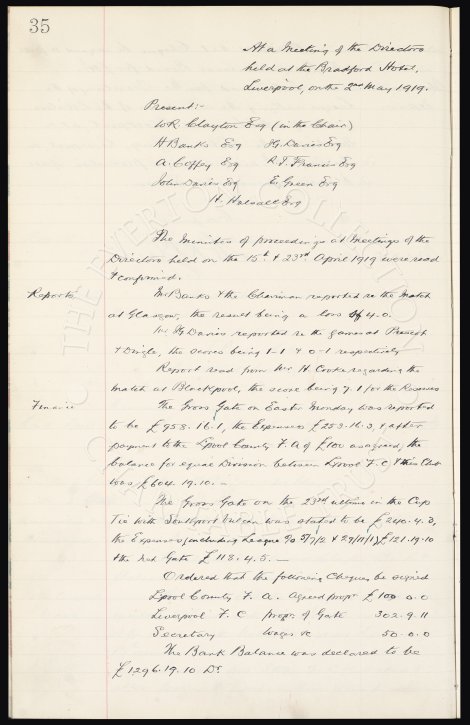 35
At a Meeting of the Directors
held at the Bradford Hotel,
Liverpool, on the 2nd May 1919.
Present:-
W.R. Clayton Esq (in the Chair)
H Banks Esq JG. Davies Esq
A. Coffey Esq R.T. Francis Esq
John Davies Esq E. Green Esq
H. Halsall Esq
The Minutes of proceedings at Meetings of the
Directors held on the 15th & 23rd April 1919 were read
& confirmed.
Reports. Mr Banks & the Chairman reported re the Match
at Glasgow, the result being a loss of 4.0.
Mr JG Davies reported re the games at Prescot
& Dingle, the scores being 1-1 & 0-1 respectively
Report read from Mr H. Cooke regarding the
match at Blackpool, the score being 7.1 for the Reserves
Finance The Gross Gate on Easter Monday was reported
to be £958.16.1, the Expenses £253.16.3, & after
payment to the Lpool County F.A of £100 as agreed, the
balance for equal Division between Lpool F.C. & this Club
was £604.19.10.-
The Gross Gate on the 23rd ultimo in the Cup
Tie with Southport Vulcan was stated to be £240.4.3,
the Expenses (including League £121.19.10
& the net Gate £118.4.5.-
Ordered that the following Cheques be signed
Lpool County F.A. Agreed propn £100.0.0
Liverpool F.C propn of Gate 302.9.11
Secretary Wages &c 50.0.0
The Bank Balance was declared to be
£1296.19.10 Dr.
THE EVERTON COLLECTION